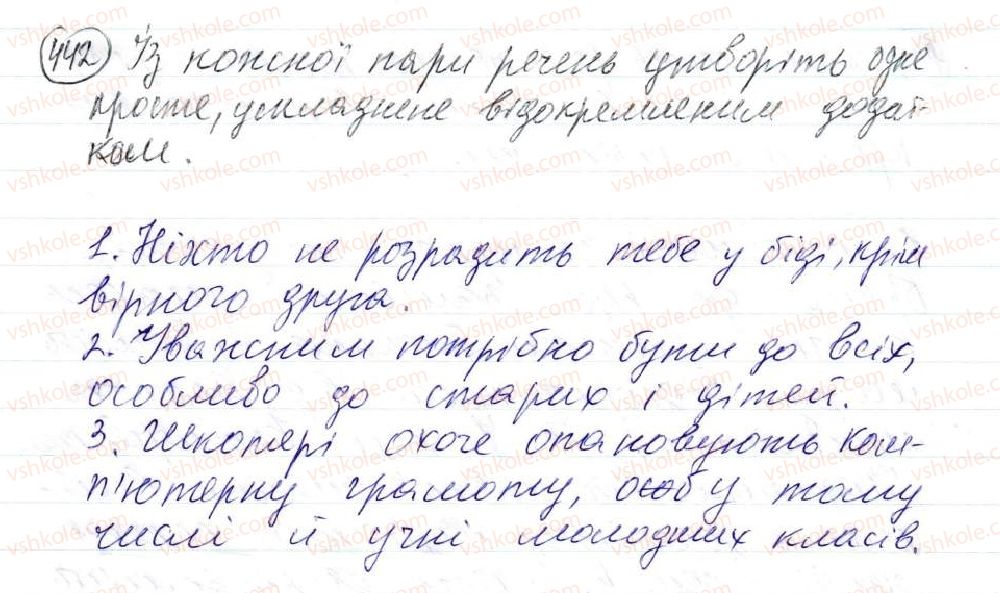 442 Із кожної пари речень утворіть одне
просте, ускладнене відокремленим додат-
ком.
1. Ніхто не розрадить тебе у біді, крім
вірного друга.
2. Уважним потрібно бути до всіх,
особливо до старих і дітей.
3. Школярі охоче опановують ком-
п'ютерну грамоту, особ у тому
числі й учні молодших класів.